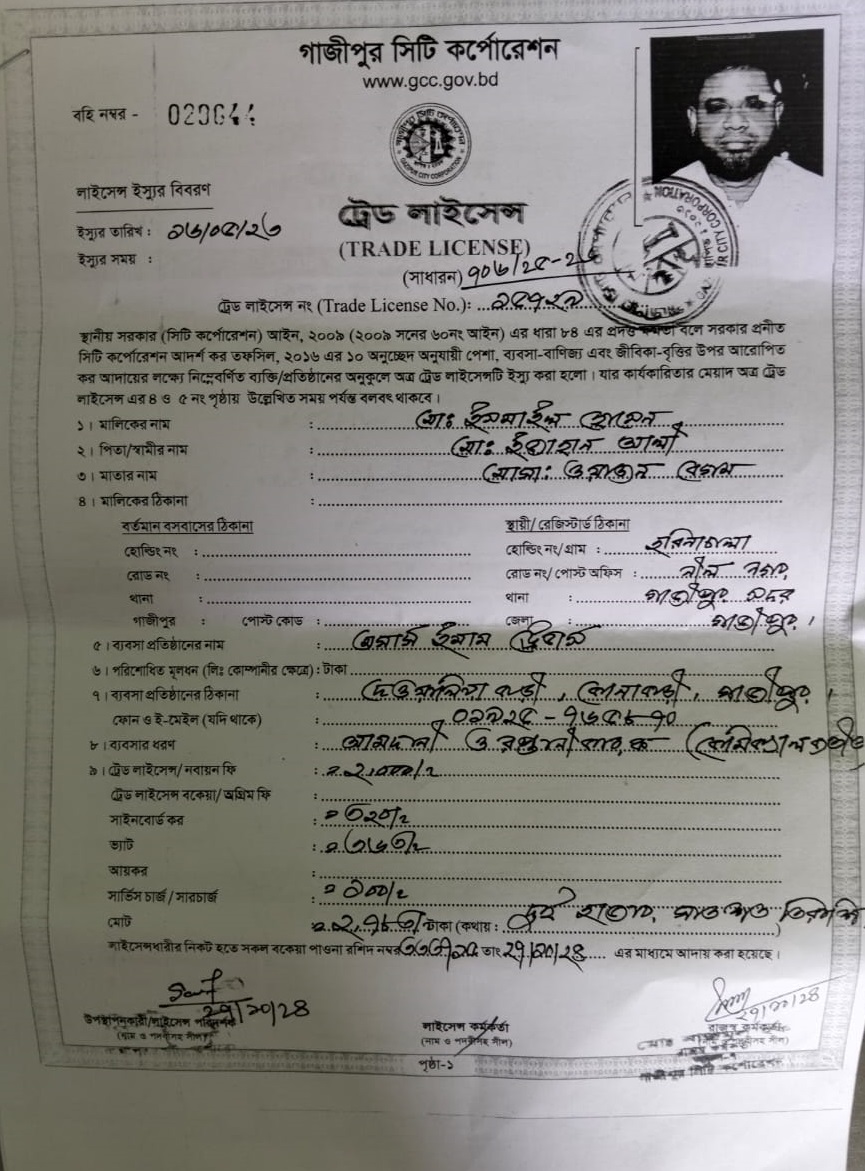 গাজীপুর সিটি কর্পোরেশন
www.gcc.gov.bd
বহি নম্বর -
লাইসেন্স ইস্যুর বিবরণ
ইস্যুর তারিখ :
ইস্যুর সময় :
ট্রেড লাইসেন্স
(TRADE LICENSE)
(সাধারন)
ট্রেড লাইসেন্স নং (Trade License No.):
স্থানীয় সরকার (সিটি কর্পোরেশন) আইন, ২০০৯ (২০০৯ সনের ৬০নং আইন) এর ধারা ৮৪ এর প্রদত্ত ক্ষমতা বলে সরকার প্রনীত
সিটি কর্পোরেশন আদর্শ কর তফসিল, ২০১৬ এর ১০ অনুচ্ছেদ অনুযায়ী পেশা, ব্যবসা-বাণিজ্য এবং জীবিকা-বৃত্তির উপর আরোপিত
কর আদায়ের লক্ষ্যে নিম্নেবর্ণিত ব্যক্তি/প্রতিষ্ঠানের অনুকুলে অত্র ট্রেড লাইসেন্সটি ইস্যু করা হলো। যার কার্যকারিতার মেয়াদ অত্র ট্রেড
লাইসেন্স এর ৪ ও ৫ নং পৃষ্ঠায় উল্লেখিত সময় পর্যন্ত বলবৎ থাকবে।
১। মালিকের নাম : মোঃ ইসমাইল হোসেন
২। পিতা/স্বামীর নাম : মোঃ আলী
৩। মাতার নাম : মোসাঃ বেগম
৪। মালিকের ঠিকানা :
বর্তমান বসবাসের ঠিকানা স্থায়ী/ রেজিস্টার্ড ঠিকানা
হোল্ডিং নং : হোল্ডিং নং/গ্রাম :
রোড নং : রোড নং/ পোস্ট অফিস : নীল নগর
থানা : থানা : গাজীপুর সদর
গাজীপুর : পোস্ট কোড : জেলা : গাজীপুর।
৫। ব্যবসা প্রতিষ্ঠানের নাম : মেসার্স ইসাম ট্রেডার্স
৬। পরিশোধিত মূলধন (লিঃ কোম্পানীর ক্ষেত্রে) : টাকা
৭। ব্যবসা প্রতিষ্ঠানের ঠিকানা : দেওয়ালিয়া বাড়ী, কোনাবাড়ী, গাজীপুর।
ফোন ও ই-মেইল (যদি থাকে) :
৮। ব্যবসার ধরণ : আমদানী ও রপ্তানীকারক
৯। ট্রেড লাইসেন্স/ নবায়ন ফি : ২,০০০/=
ট্রেড লাইসেন্স বকেয়া/ অগ্রিম ফি :
সাইনবোর্ড কর : ৩২০/=
ভ্যাট : ৩৬৩/=
আয়কর :
সার্ভিস চার্জ / সারচার্জ : ১০০/=
মোট : ২,৭৮৩/ টাকা (কথায় : দুই হাজার সাত শত তিরাশি
লাইসেন্সধারীর নিকট হতে সকল বকেয়া পাওনা রশিদ নম্বর তাং ২৭/১০/২৪ এর মাধ্যমে আদায় করা হয়েছে।
২৭/১০/২৪
২৭/১০/২৪
উপস্থাপনকারী/লাইসেন্স পরিদর্শক
(নাম ও পদবীসহ সীল)
লাইসেন্স কর্মকর্তা
(নাম ও পদবীসহ সীল)
গাজীপুর সিটি কর্পোরেশন
পৃষ্ঠা-১